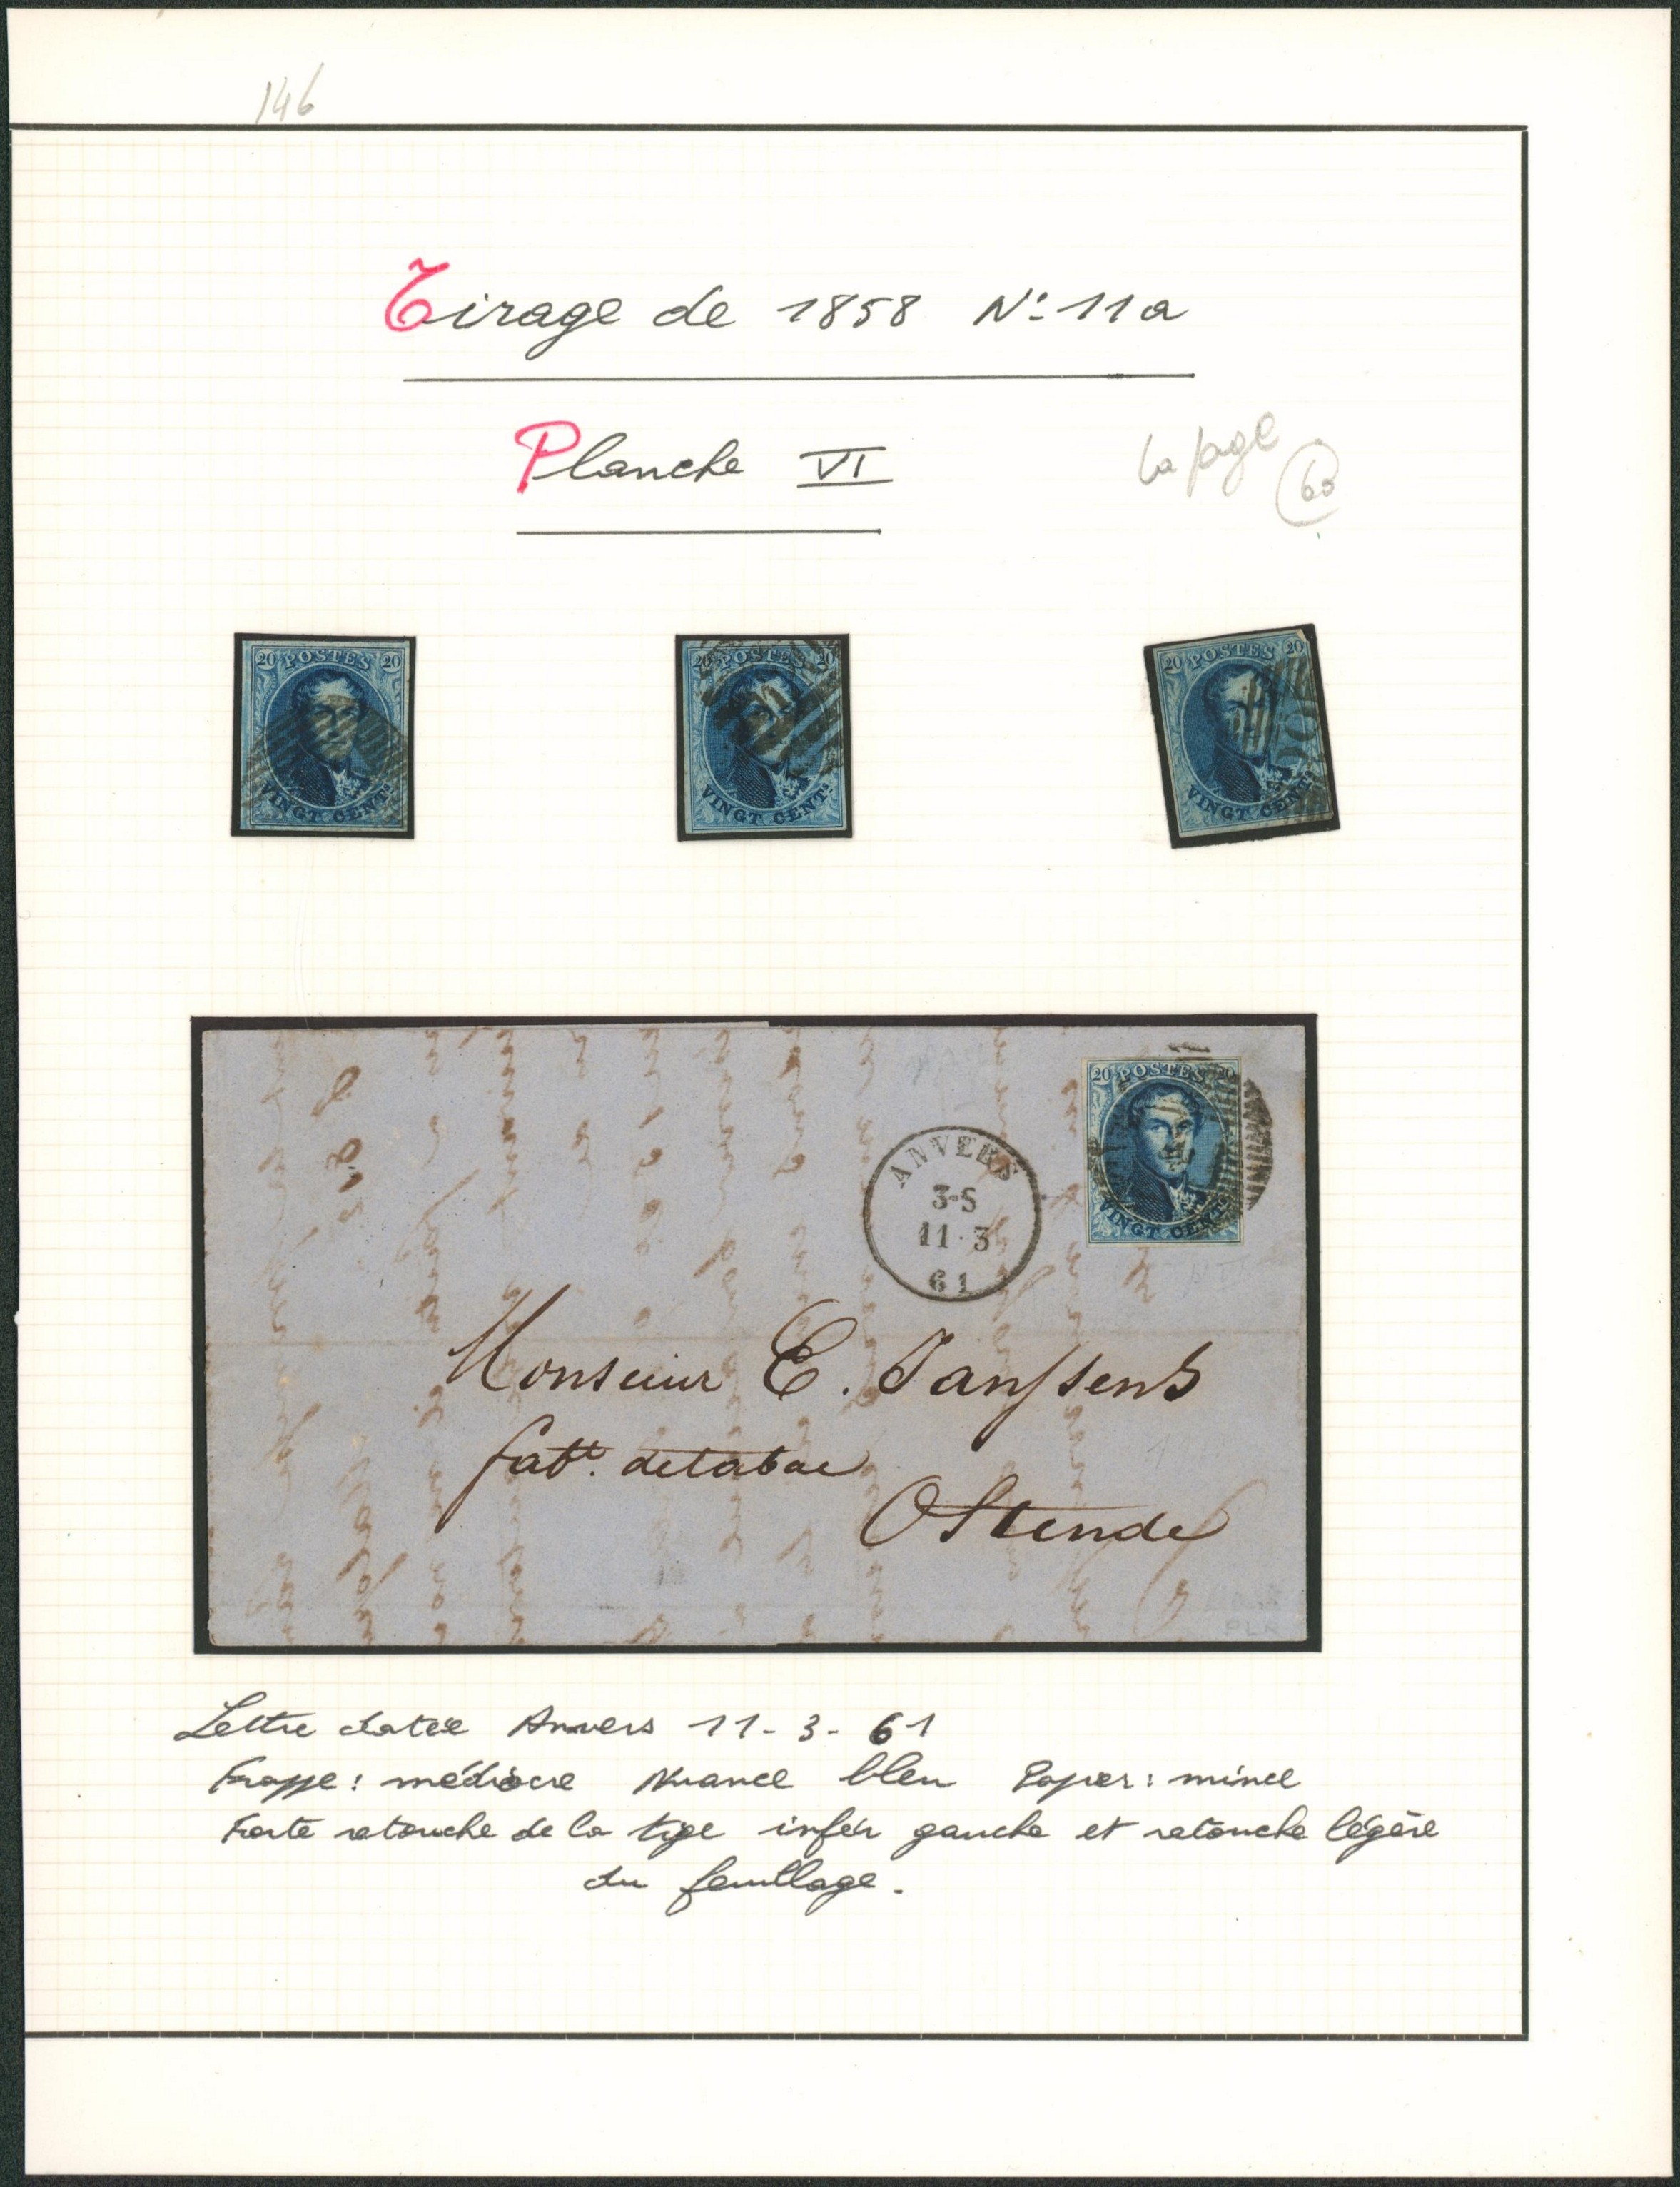 146
Tirage de 1858 N° 11a
Planche VI
la page
60
20 POSTES 20
VINGT CENTS
20 POSTES 20
VINGT CENTS
20 POSTES 20
VINGT CENTS
20 POSTES 20
VINGT CENTS
ANVERS
3-S
11·3
61
Monsieur E. Janssens
fabt. de tabac
Ostende
Lettre datée Anvers 11-3-61
Frappe: médiocre Nuance bleu Papier: mince
Forte retouche de la tige infér gauche et retouche légère
du feuillage.